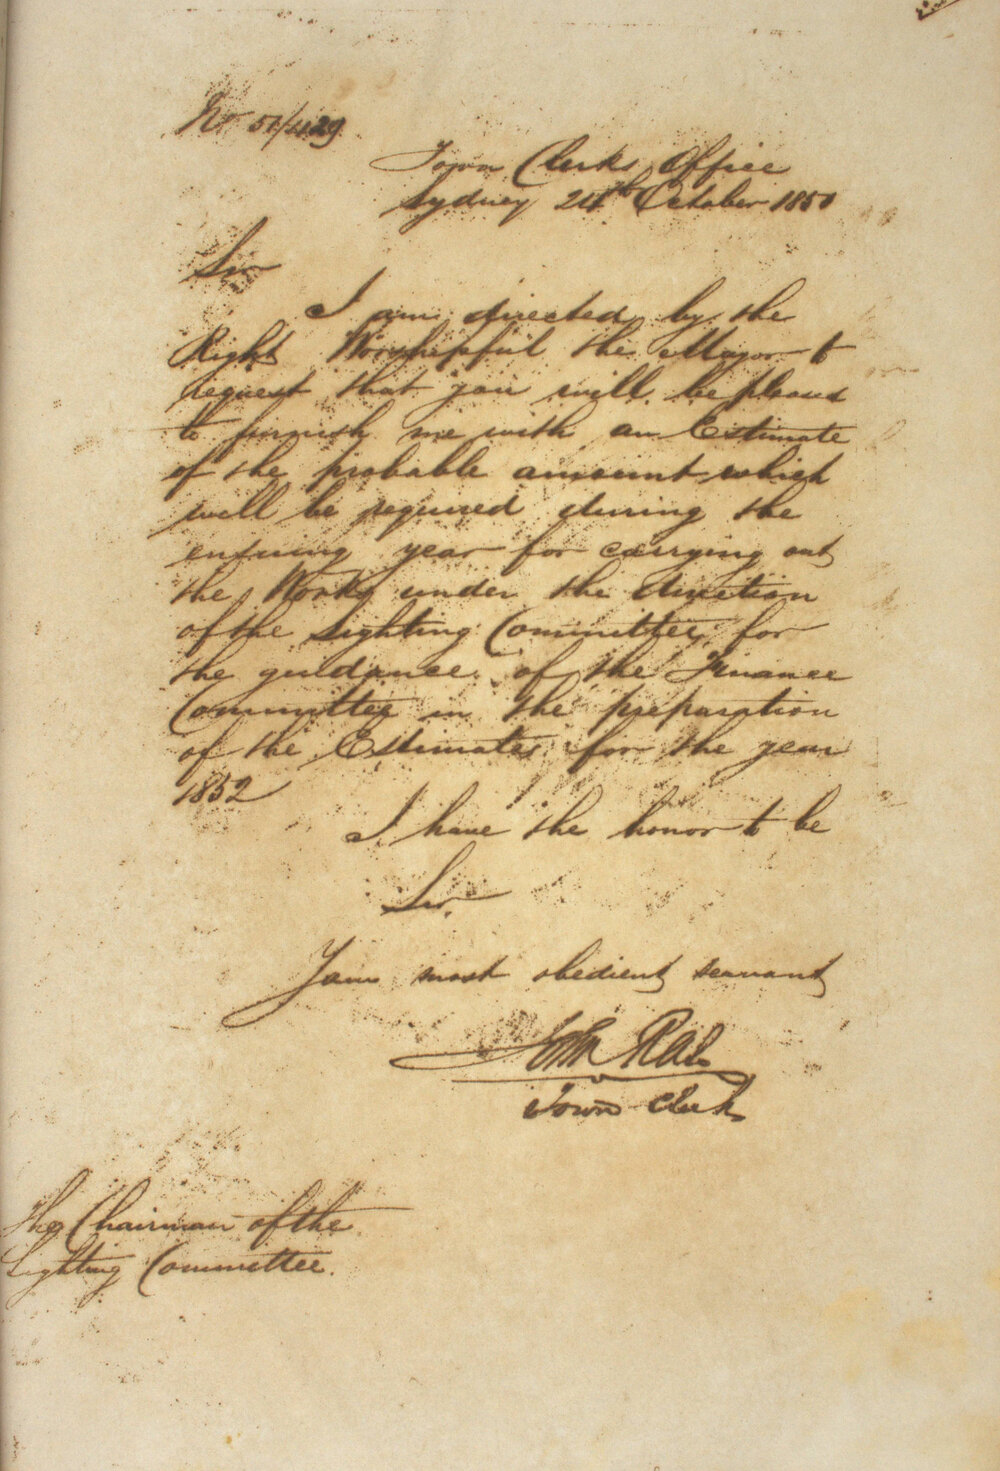 No 51/429
Town Clerks Office
Sydney 24th October 1851
Sir
I am directed by the
Right Worshipful the Mayor to
request that you will be pleased
to furnish me with an Estimate
of the probable amount which
will be required during the
ensuing year for carrying out
the Works under the direction
of the Lighting Committee, for
the guidance of the Finance
Committee in the preparation
of the Estimates for the year
1852
I have the honor to be
Sir
Your most obedient servant
John Rae
Town Clerk
The Chairman of the
Lighting Committee.